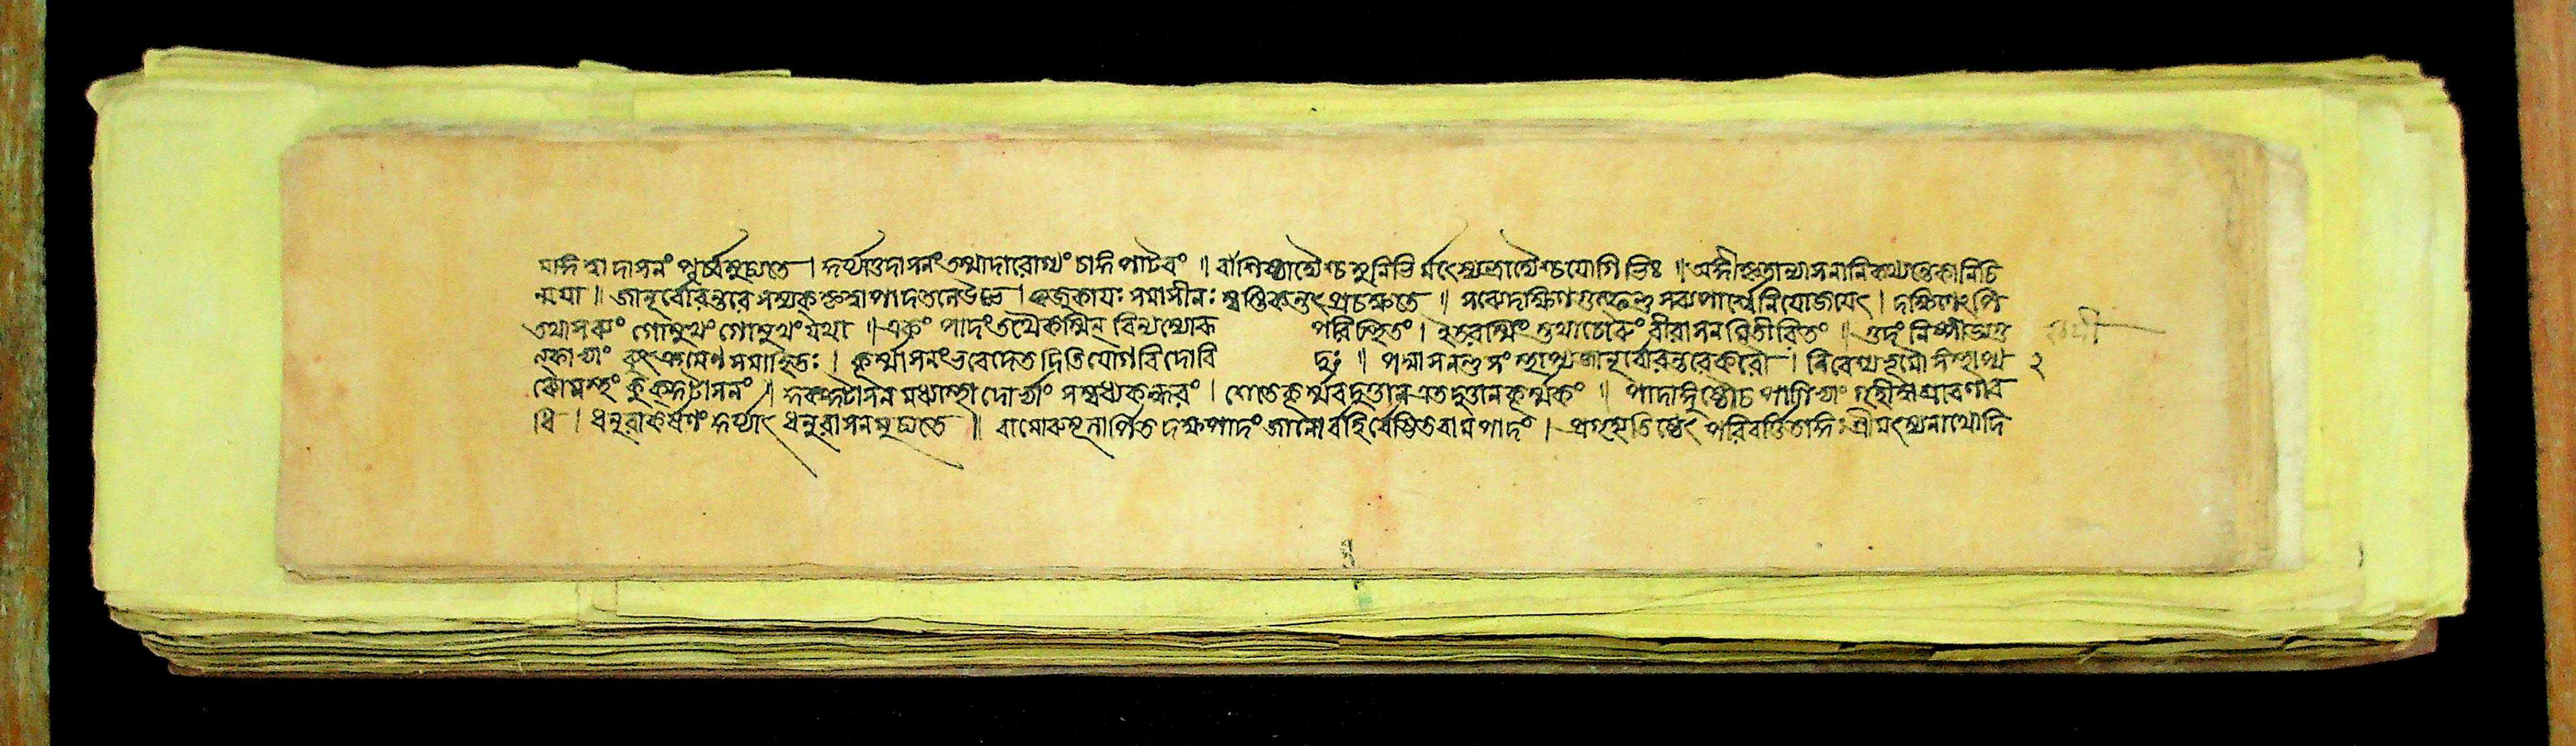 মাঙ্গত্বাদাসনং পূর্ব্বমুচ্যতে । কুর্য্যাত্তদাসনং তস্মাদারোগ্যং চাঙ্গপাটবং ॥ বাশিষ্ঠাদ্যৈশ্চ মুনিভির্মৎস্যেন্দ্রাদ্যৈশ্চ যোগিভিঃ ॥ অঙ্গীকৃতান্যাসনানি কথ্যন্তে কানিচি
ন্ময়া ॥ জানূর্ব্বোরন্তরে সম্যক্ কৃত্বা পাদতলে উভে । ঋজুকায়ঃ সমাসীনঃ স্বস্তিকন্তৎ প্রচক্ষতে ॥ সব্যে দক্ষিণগুল্ফন্তু সব্যপার্শ্বে নিযোজয়েৎ । দক্ষিণেঽপি
তথা সব্যং গোমুখং গোমুখং যথা ॥ একং পাদং তথৈকস্মিন্ বিন্যস্যোরু পরিস্থিতং । ইতরস্মিং স্তথা চোরুং বীরাসনমিতীরিতং ॥ গুদং নিষ্পীড্য গু
ল্ফাভ্যাং ব্যুৎক্রমেণ সমাহিতঃ । কূর্ম্মাসনং ভবেদেতদিতি যোগবিদো বি দুঃ ॥ পদ্মাসনন্তু সংস্থাপ্য জানূর্ব্বোরন্তরে করৌ । নিবেশ্য ভূমৌ সংস্থাপ্য ২
ব্যোমস্থং কুক্কুটাসনং ॥ কুক্কুটাসনমধ্যস্থো দোর্ভ্যাং সম্বধ্য কন্ধরং । শেতে কূর্ম্মবদুত্তান এতদুত্তানকূর্ম্মকং ॥ পাদাঙ্গুষ্ঠৌ চ পাণিভ্যাং গৃহীত্বা শ্রবণাব
ধি । ধনুরাকর্ষণং কুর্য্যাৎ ধনুরাসনমুচ্যতে ॥ বামোরুমূলার্পিত দক্ষপাদং জানোর্বহির্বেষ্টিত বামপাদং । প্রগৃহ্য তিষ্ঠেৎ পরিবর্ত্তিতাঙ্গঃ শ্রীমৎস্যনাথোদি